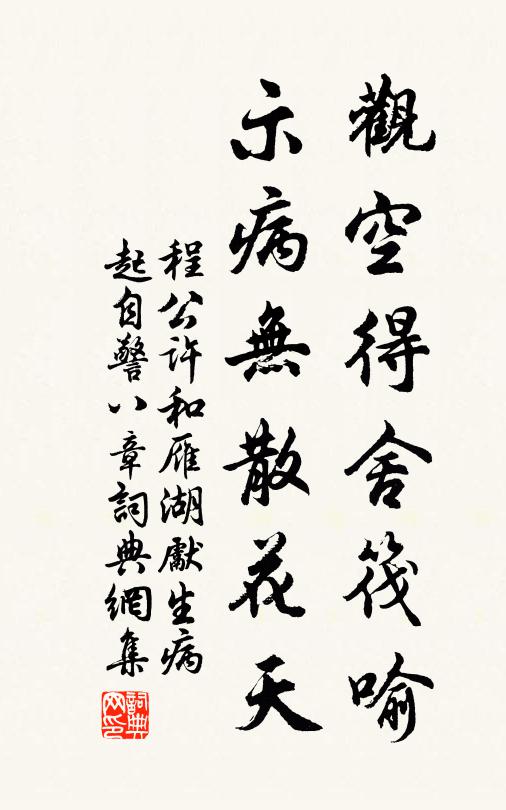 觀空得舍筏喻
示病無散花天
程公許和雁湖獻生病
起自警八章詞典網集
詞典
网印